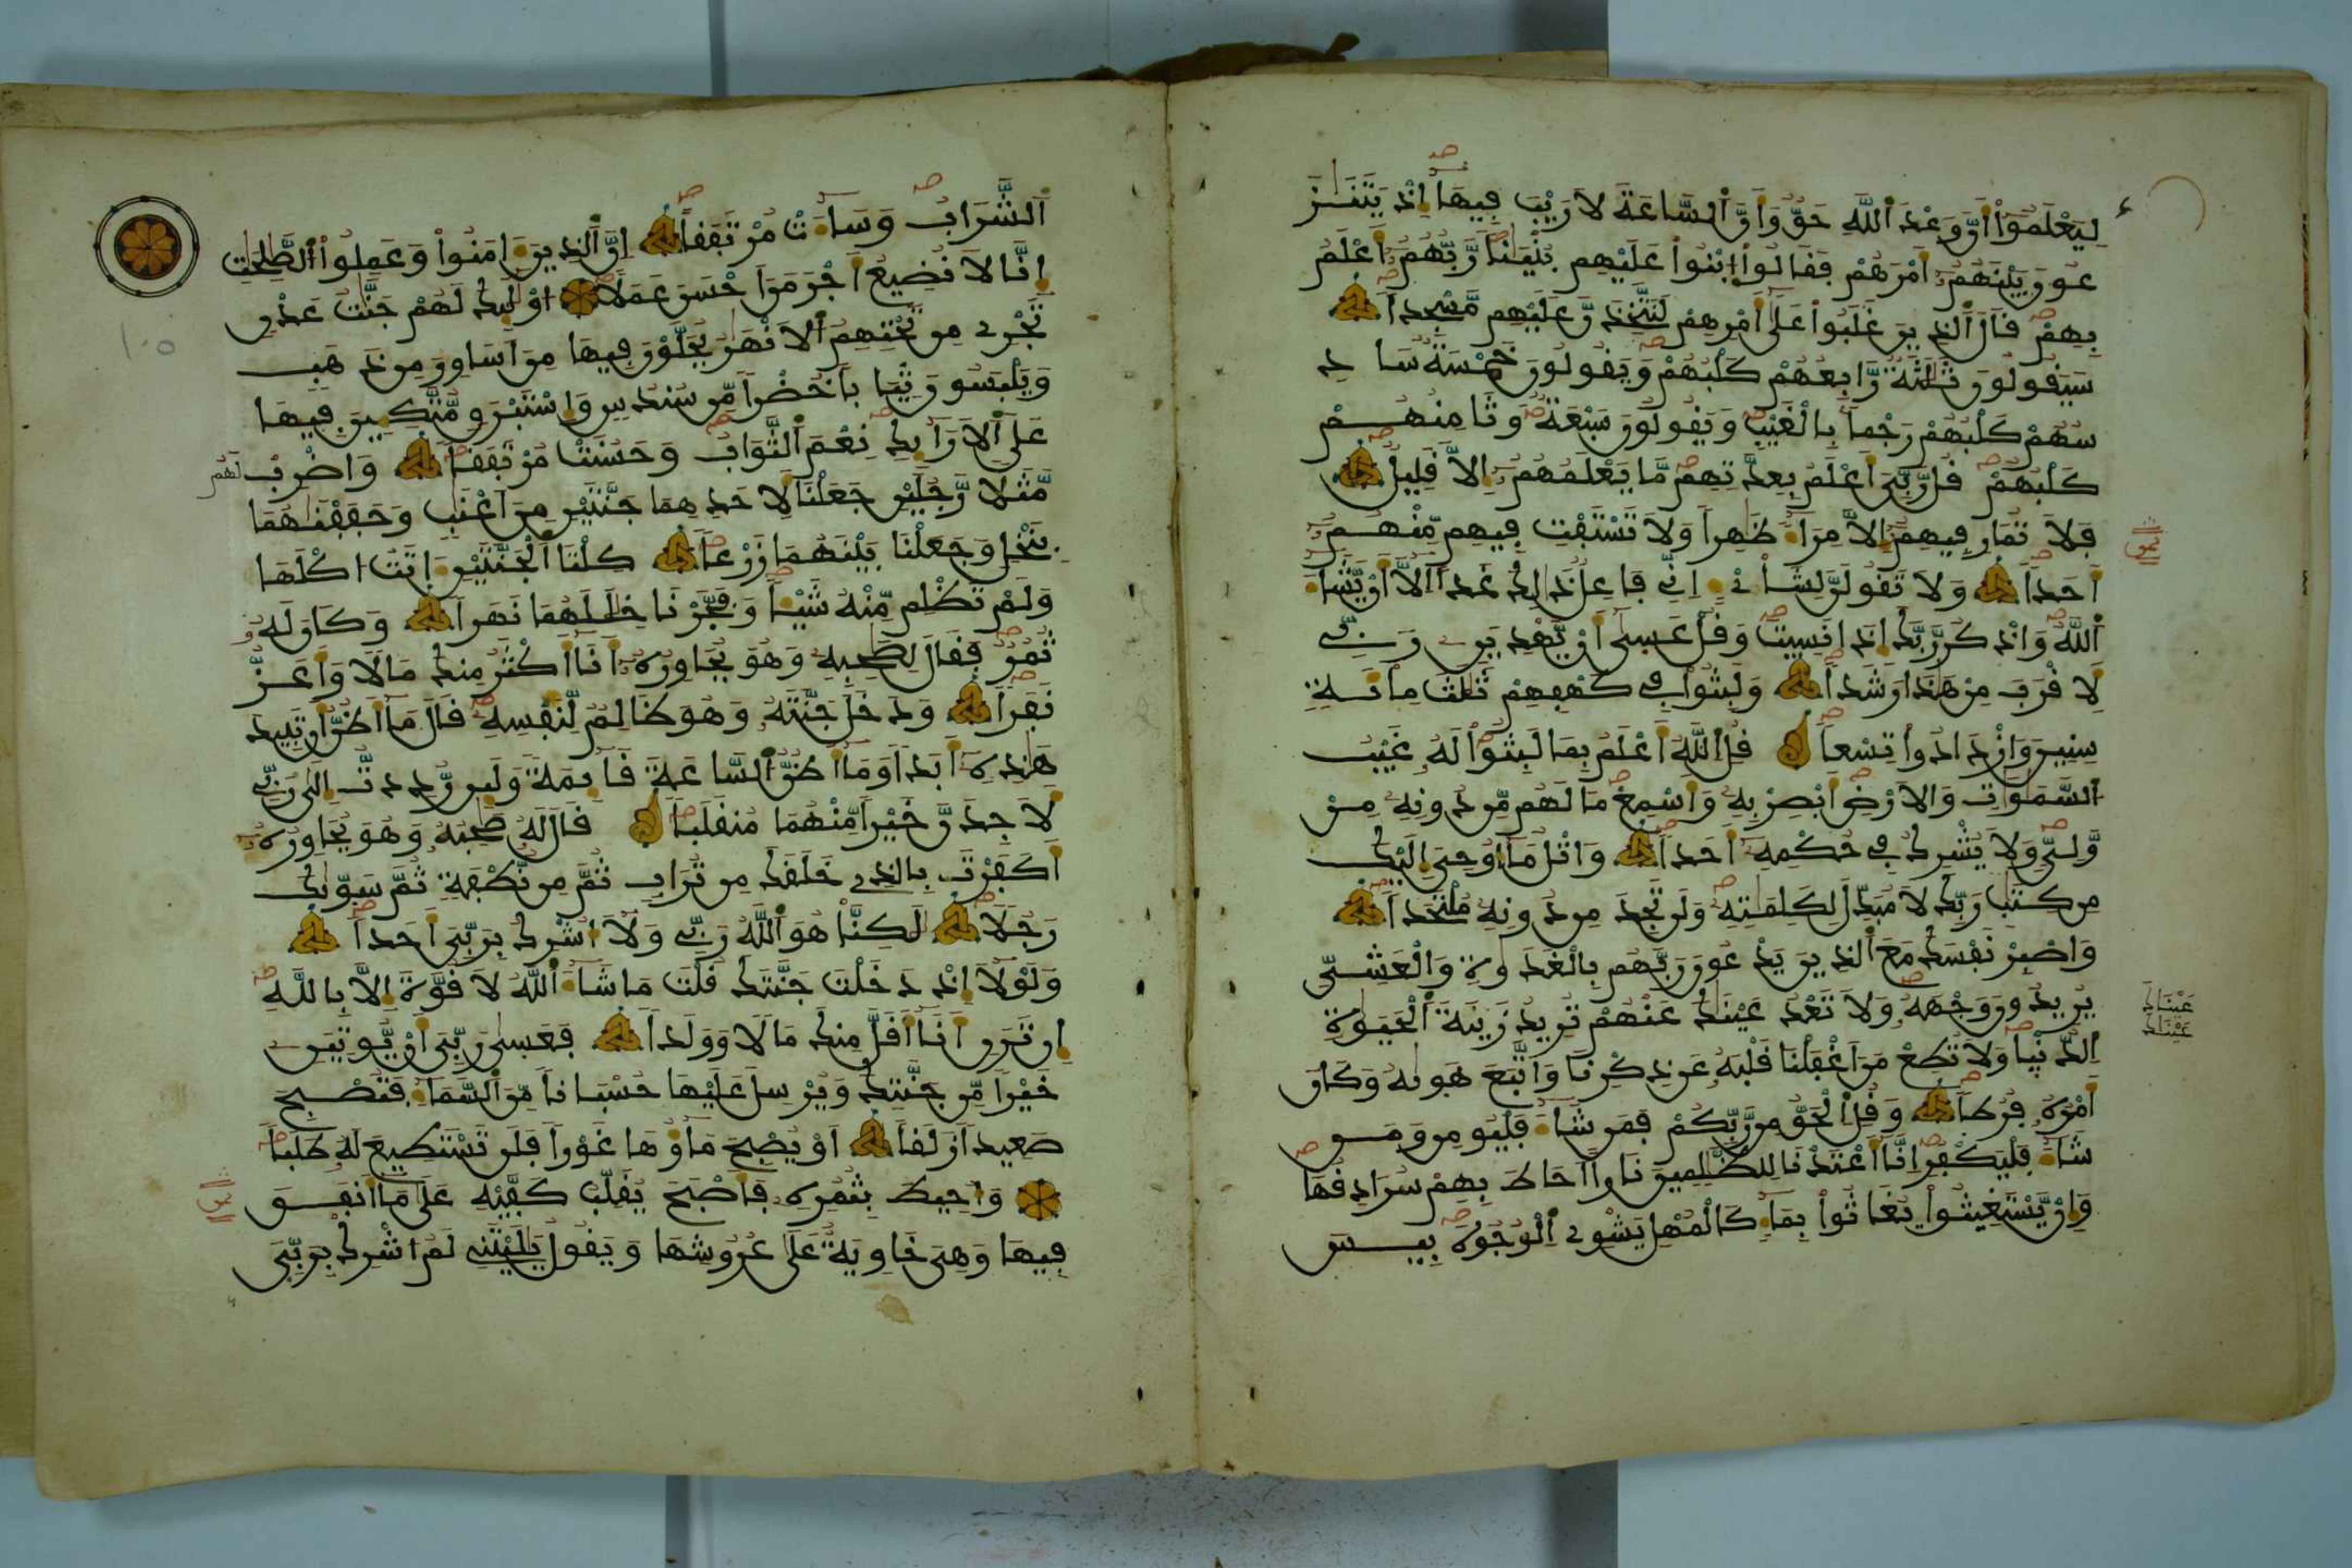 لِيَعْلَمُوٓاْ أَنَّ وَعْدَ اَ۬للَّهِ حَقّٞ وَأَنَّ اَ۬لسَّاعَةَ لَا رَيْبَ فِيهَآ إِذْ يَتَنَٰزَ
عُونَ بَيْنَهُمُۥٓ أَمْرَهُمْ فَقَالُواْ اُ۪بْنُواْ عَلَيْهِم بُنْيَٰناٗ رَّبُّهُمُۥٓ أَعْلَمُ
بِهِمْ قَالَ اَ۬لذِينَ غَلَبُواْ عَلَىٰٓ أَمْرِهِمْ لَنَتَّخِذَنَّ عَلَيْهِم مَّسْجِداٗ
سَيَقُولُونَ ثَلَٰثَةٞ رَّابِعُهُمْ كَلْبُهُمْ وَيَقُولُونَ خَمْسَةٞ سَادِ
سُهُمْ كَلْبُهُمْ رَجْماَۢ بِالْغَيْبِ وَيَقُولُونَ سَبْعَةٞ وَثَامِنُهُمْ
كَلْبُهُمْ قُل رَّبِّيَ أَعْلَمُ بِعِدَّتِهِم مَّا يَعْلَمُهُمُۥٓ إِلَّا قَلِيلٞ
فَلَا تُمَارِ فِيهِمُۥٓ إِلَّا مِرَآءٗ ظَٰهِراٗ وَلَا تَسْتَفْتِ فِيهِم مِّنْهُمُۥٓ
أَحَداٗ وَلَا تَقُولَنَّ لِشَاْےْءٍ اِنِّے فَاعِلٞ ذَٰلِكَ غَداً اِلَّآ أَنْ يَّشَآءَ
اَ۬للَّهُ وَاذْكُر رَّبَّكَ إِذَا نَسِيتَ وَقُلْ عَسَىٰٓ أَنْ يَّهْدِيَنِۦ رَبِّے
لِأَقْرَبَ مِنْ هَٰذَا رَشَداٗ وَلَبِثُواْ فِے كَهْفِهِمْ ثَلَٰثَ مِاْئَةٖ
سِنِينَ وَازْدَادُواْ تِسْعاٗ قُلِ اِ۬للَّهُ أَعْلَمُ بِمَا لَبِثُواْ لَهُۥ غَيْبُ
اُ۬لسَّمَٰوَٰتِ وَالَارْضِ أَبْصِرْ بِهِۦ وَأَسْمِعْ مَا لَهُم مِّن دُونِهِۦ مِنْ
وَّلِيّٖ وَلَا يُشْرِكُ فِے حُكْمِهِۦٓ أَحَداٗ وَاتْلُ مَآ أُوحِيَ إِلَيْكَ
مِن كِتَٰبِ رَبِّكَ لَا مُبَدِّلَ لِكَلِمَٰتِهِۦ وَلَن تَجِدَ مِن دُونِهِۦ مُلْتَحَداٗ
وَاصْبِرْ نَفْسَكَ مَعَ اَ۬لذِينَ يَدْعُونَ رَبَّهُم بِالْغَدَوٰةِ وَالْعَشِيِّ
يُرِيدُونَ وَجْهَهُۥ وَلَا تَعْدُ عَيْنَٰكَ عَنْهُمْ تُرِيدُ زِينَةَ اَ۬لْحَيَوٰةِ
عَيْنَاكَ
عَيْنَٰكَ
اِ۬لدُّنْيَا وَلَا تُطِعْ مَنَ اَغْفَلْنَا قَلْبَهُۥ عَن ذِكْرِنَا وَاتَّبَعَ هَوَىٰهُ وَكَانَ
أَمْرُهُۥ فُرُطاٗ وَقُلِ اِ۬لْحَقُّ مِن رَّبِّكُمْ فَمَن شَآءَ فَلْيُومِن وَمَن
شَآءَ فَلْيَكْفُرِ اِنَّآ أَعْتَدْنَا لِلظَّٰلِمِينَ نَاراً اَحَاطَ بِهِمْ سُرَادِقُهَا
وَإِنْ يَّسْتَغِيثُواْ يُغَاثُواْ بِمَآءٖ كَالْمُهْلِ يَشْوِے اِ۬لْوُجُوهَ بِيسَ
اَ۬لشَّرَابُ وَسَآءَتْ مُرْتَفَقاً اِنَّ اَ۬لذِينَ ءَامَنُواْ وَعَمِلُواْ اُ۬لصَّٰلِحَٰتِ
إِنَّا لَا نُضِيعُ أَجْرَ مَنَ اَحْسَنَ عَمَلاً اُوْلَٰٓئِكَ لَهُمْ جَنَّٰتُ عَدْنٖ
تَجْرِے مِن تَحْتِهِمُ اُ۬لَانْهَٰرُ يُحَلَّوْنَ فِيهَا مِنَ اَسَاوِرَ مِن ذَهَبٖ
وَيَلْبَسُونَ ثِيَاباً خُضْراٗ مِّن سُندُسٖ وَإِسْتَبْرَقٖ مُّتَّكِـِٕينَ فِيهَا
عَلَى اَ۬لَارَآئِكِ نِعْمَ اَ۬لثَّوَابُ وَحَسُنَتْ مُرْتَفَقاٗ وَاضْرِبْ لَهُم
مَّثَلاٗ رَّجُلَيْنِ جَعَلْنَا لِأَحَدِهِمَا جَنَّتَيْنِ مِنَ اَعْنَٰبٖ وَحَفَفْنَٰهُمَا
بِنَخْلٖ وَجَعَلْنَا بَيْنَهُمَا زَرْعاٗ كِلْتَا اَ۬لْجَنَّتَيْنِ ءَاتَتُ ا۟كْلَهَا
وَلَمْ تَظْلِم مِّنْهُ شَيْـٔاٗ وَفَجَّرْنَا خِلَٰلَهُمَا نَهَراٗ وَكَانَ لَهُۥ
ثُمُرٞ فَقَالَ لِصَٰحِبِهِۦ وَهُوَ يُحَاوِرُهُۥٓ أَنَآ أَكْثَرُ مِنكَ مَالاٗ وَأَعَزُّ
نَفَراٗ وَدَخَلَ جَنَّتَهُۥ وَهُوَ ظَالِمٞ لِّنَفْسِهِۦ قَالَ مَآ أَظُنُّ أَن تَبِيدَ
هَٰذِهِۦٓ أَبَداٗ وَمَآ أَظُنُّ اُ۬لسَّاعَةَ قَآئِمَةٗ وَلَئِن رُّدِدتُّ إِلَىٰ رَبِّے
لَأَجِدَنَّ خَيْراٗ مِّنْهُمَا مُنقَلَباٗ قَالَ لَهُۥ صَٰحِبُهُۥ وَهُوَ يُحَاوِرُهُۥٓ
أَكَفَرْتَ بِالذِے خَلَقَكَ مِن تُرَابٖ ثُمَّ مِن نُّطْفَةٖ ثُمَّ سَوَّىٰكَ
رَجُلاٗ لَّٰكِنَّا هُوَ اَ۬للَّهُ رَبِّے وَلَآ أُشْرِكُ بِرَبِّيَ أَحَداٗ
وَلَوْلَآ إِذْ دَخَلْتَ جَنَّتَكَ قُلْتَ مَا شَآءَ اَ۬للَّهُ لَا قُوَّةَ إِلَّا بِاللَّهِ
إِن تَرَنِۦٓ أَنَآ أَقَلَّ مِنكَ مَالاٗ وَوَلَداٗ فَعَسَىٰ رَبِّيَ أَنْ يُّوتِيَنِۦ
خَيْراٗ مِّن جَنَّتِكَ وَيُرْسِلَ عَلَيْهَا حُسْبَاناٗ مِّنَ اَ۬لسَّمَآءِ فَتُصْبِحَ
صَعِيداٗ زَلَقاً اَوْ يُصْبِحَ مَآؤُهَا غَوْراٗ فَلَن تَسْتَطِيعَ لَهُۥ طَلَباٗ
وَأُحِيطَ بِثُمُرِهِۦ فَأَصْبَحَ يُقَلِّبُ كَفَّيْهِ عَلَىٰ مَآ أَنفَقَ
فِيهَا وَهِيَ خَاوِيَةٌ عَلَىٰ عُرُوشِهَا وَيَقُولُ يَٰلَيْتَنِے لَمُ ا۟شْرِكْ بِرَبِّيَ